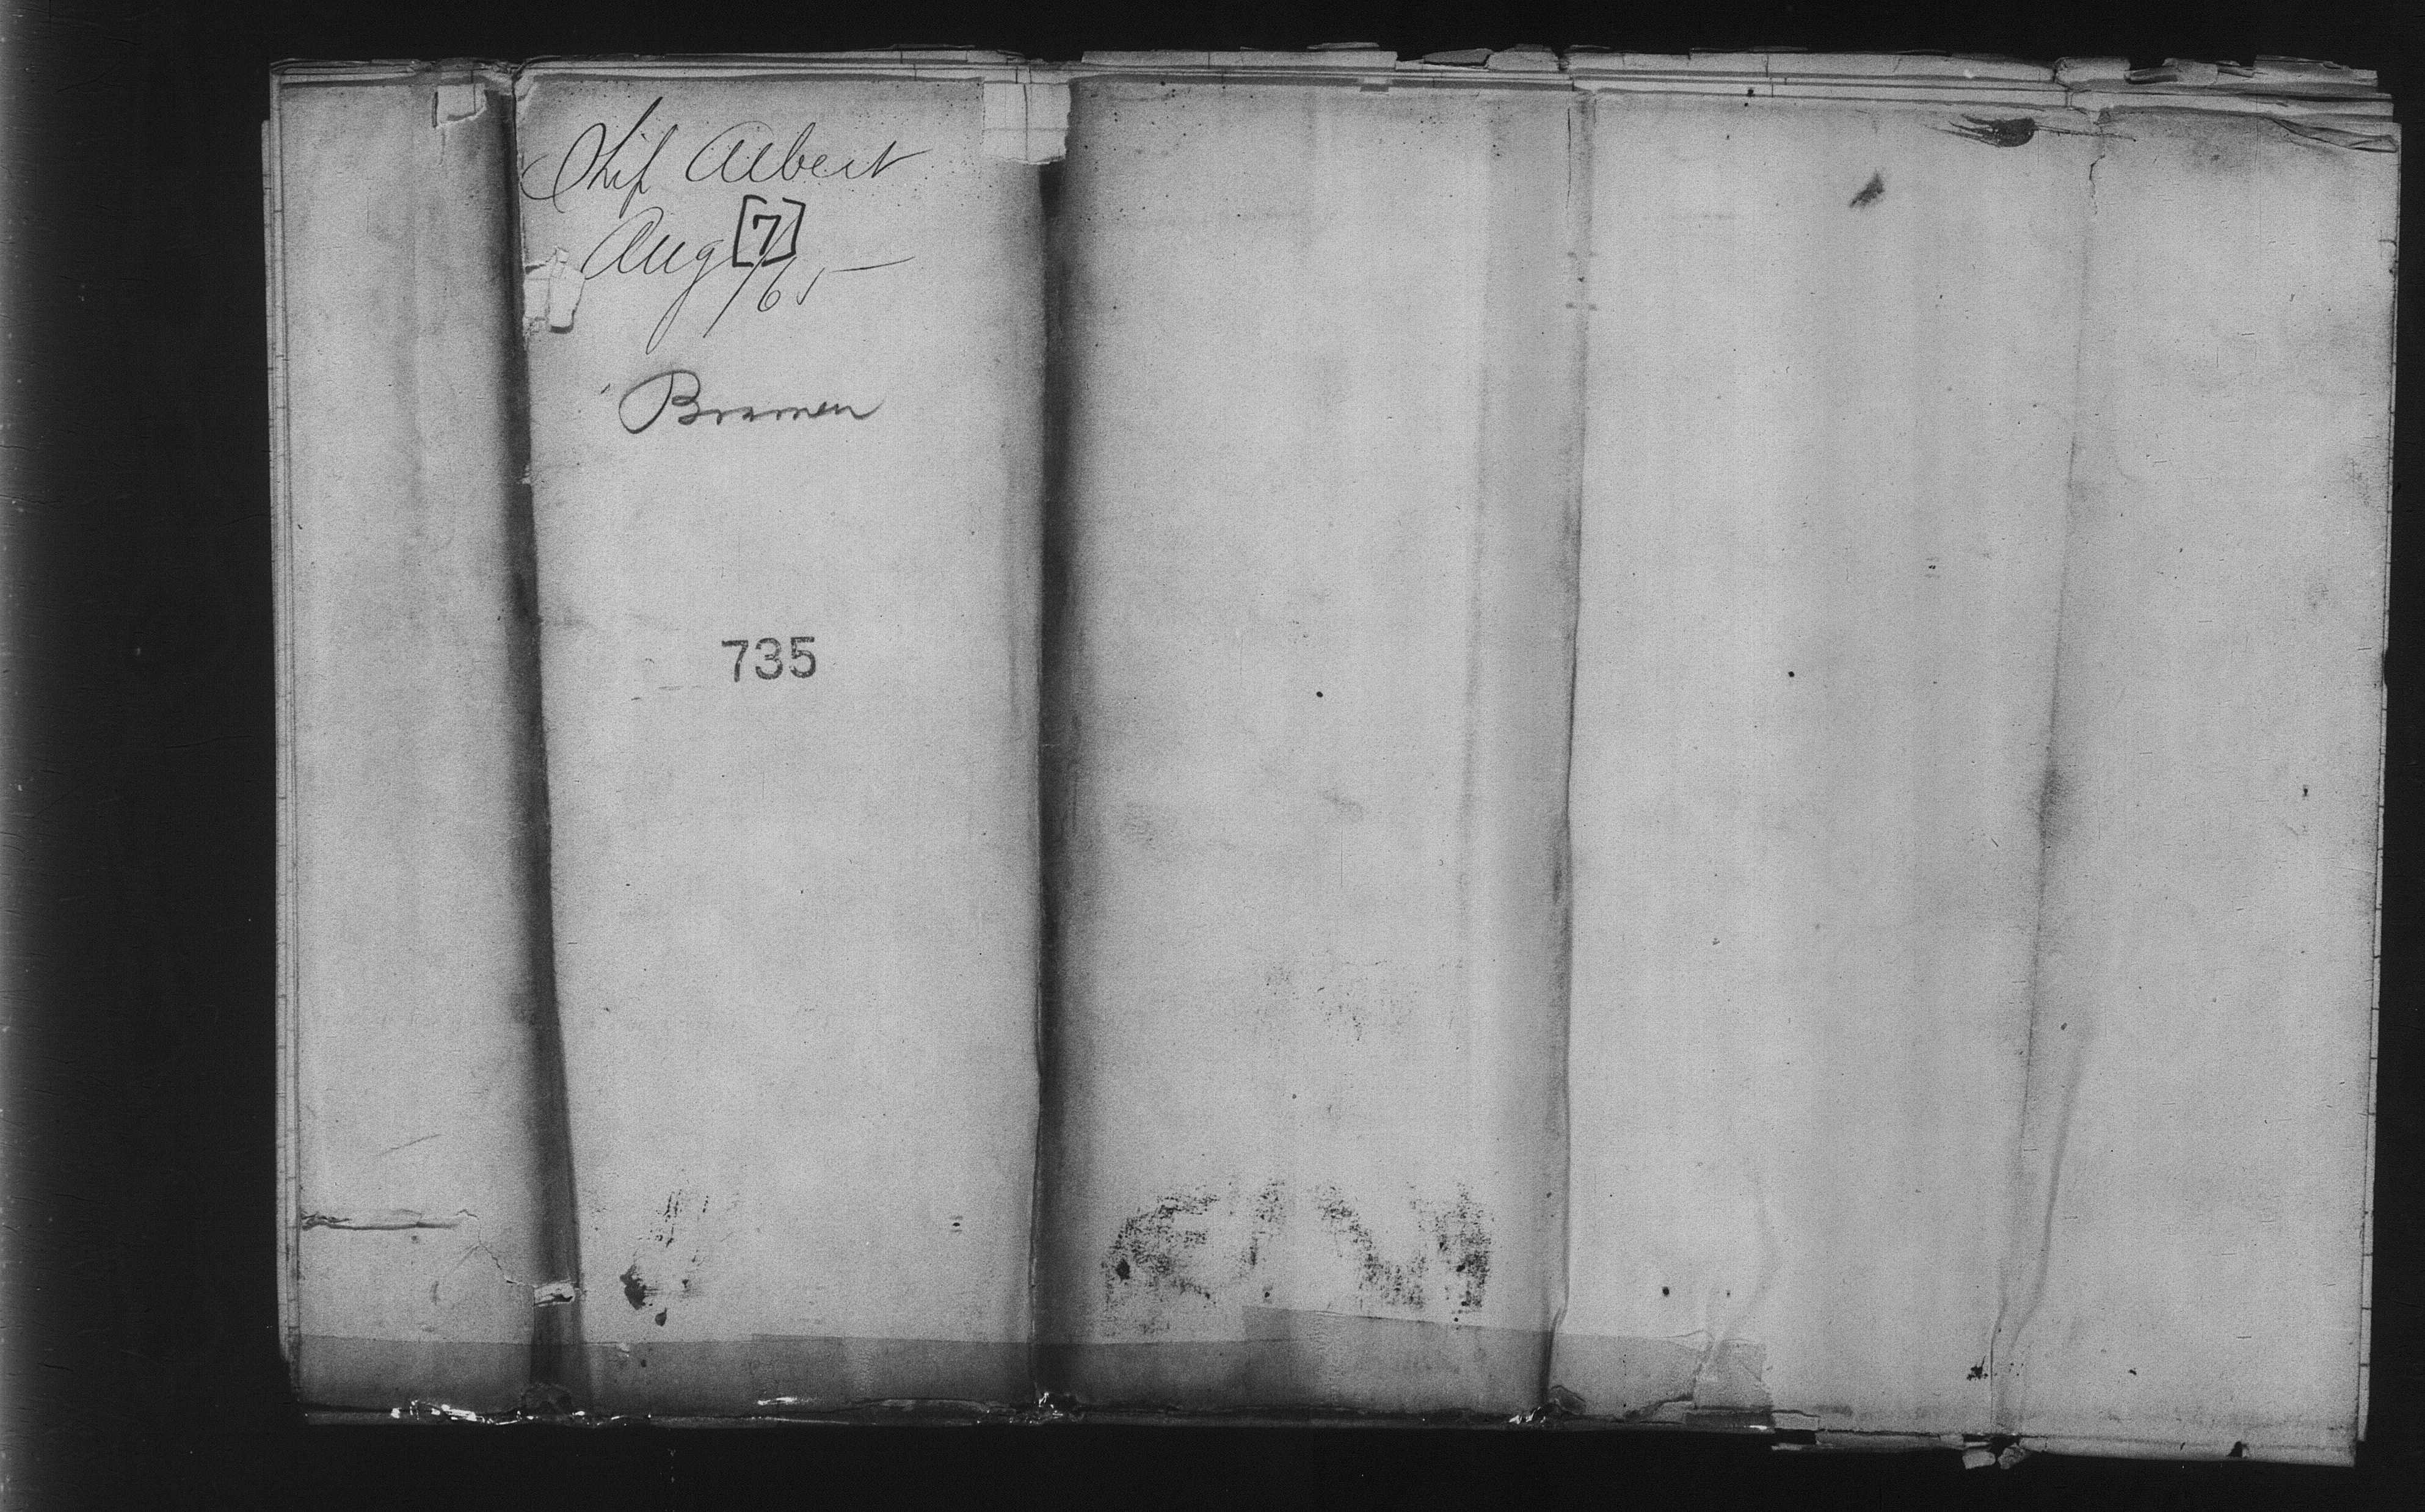 Ship Albert
Aug [7]/65
Bremen
735